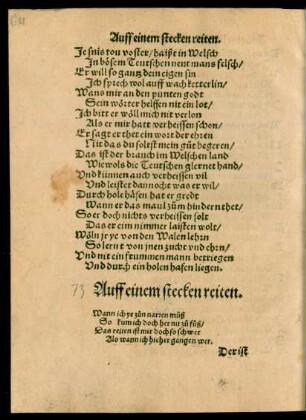 Auff einem stecken reiten.
Je suis tou voster/ haißt in Welsch
In bösem Teutschen nent mans felsch/
Er will so gantz dein eigen sin
Ich sprech wol auff wach ketterlin/
Wans mir an den punten godt
Sein wörter helffen nit ein lot/
Ich bitt er wöll mich nit verlon
Als er mir hatt verheissen schon/
Er sagt er thet ein wort der ehren
Nit das du soltst mein gůt begeren/
Das ist der brauch im Welschen land
Wiewols die Teutschen glernet hand/
Vnd künnen auch verheissen vil
Vnd leistet dannocht was er wil/
Durch hole häfen hat er gredt
Wann er das maul zům hindern thet/
So er doch nichts verheissen solt
Das er eim nimmer laisten wolt/
Wöln ye von den Walen lehrn
So lernt von jnen zucht vnd ehrn/
Vnd mit ein frummen mann betriegen
Vnd durch ein holen hafen liegen.
73
Auff einem stecken reiten.
Wann ich ye zün narren můß
So kum ich doch her nit zů fůß/
Das reiten ist mir doch so schwer
Als wann ich hieher gangen wer.
Der ist